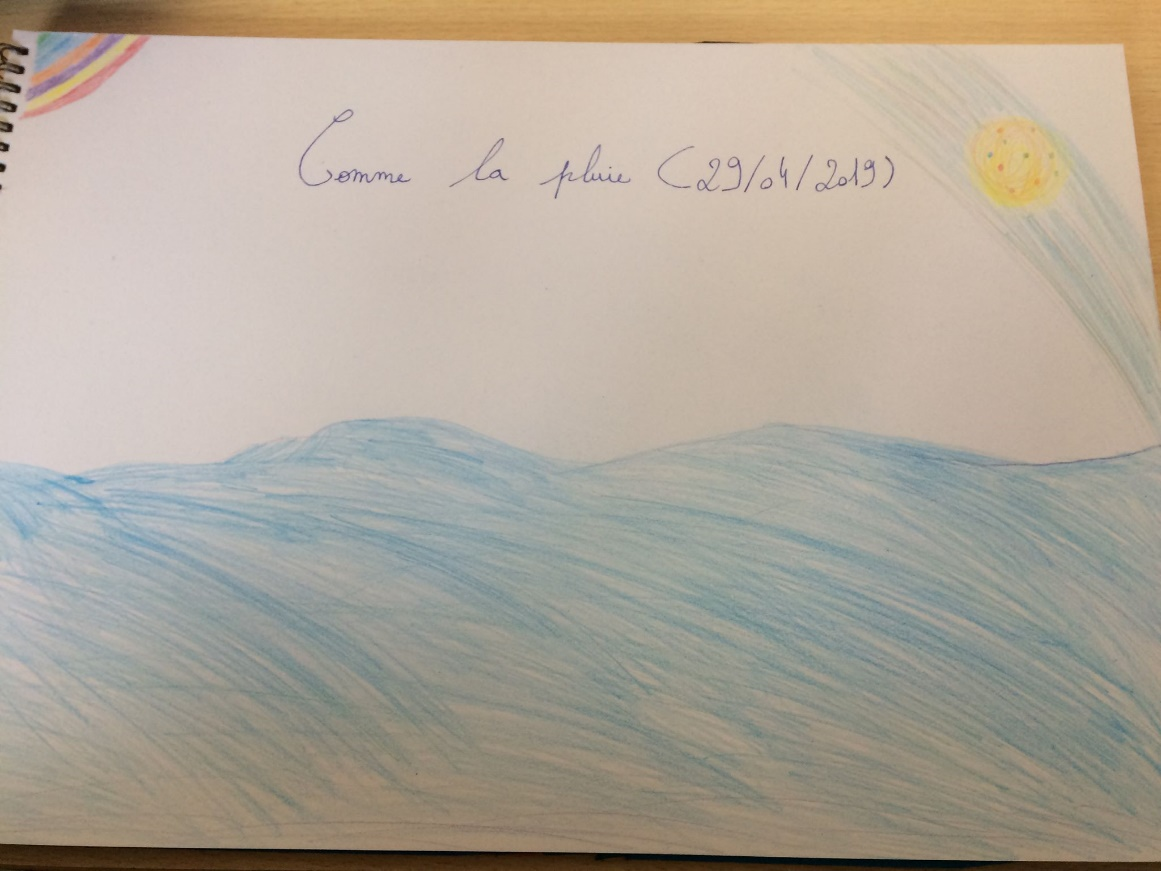 Comme la pluie (29/04/2019)